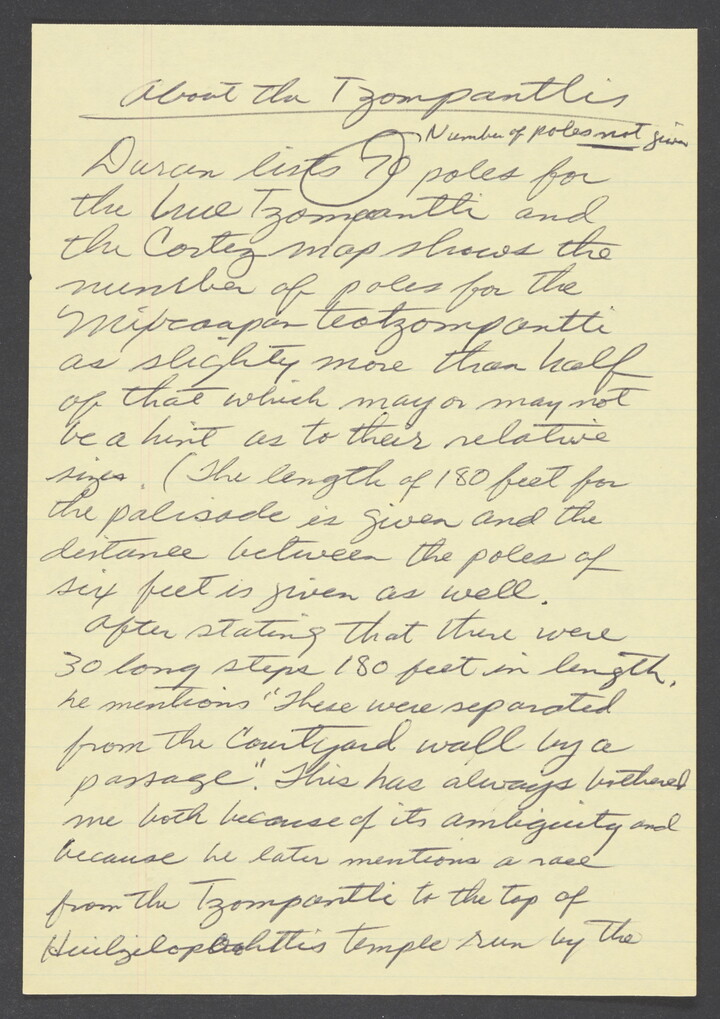 About the Tzompantlis
Number of poles not given
Duran lists 70 poles for
the huei Tzompantli and
the Cortez map shows the
number of poles for the
Mixcoapan teotzompantli
as slighty more than half
of that which may or may not
be a hint as to their relative
sizes. (The length of 180 feet for
the palisade is given and the
distance between the poles of
six feet is given as well.
After stating that there were
30 long steps 180 feet in length,
he mentions "These were separated
from the Courtyard wall by a
passage". This has always bothered
me both because of its ambiguity and
because he later mentions a race
from the Tzompantli to the top of
temple run by the